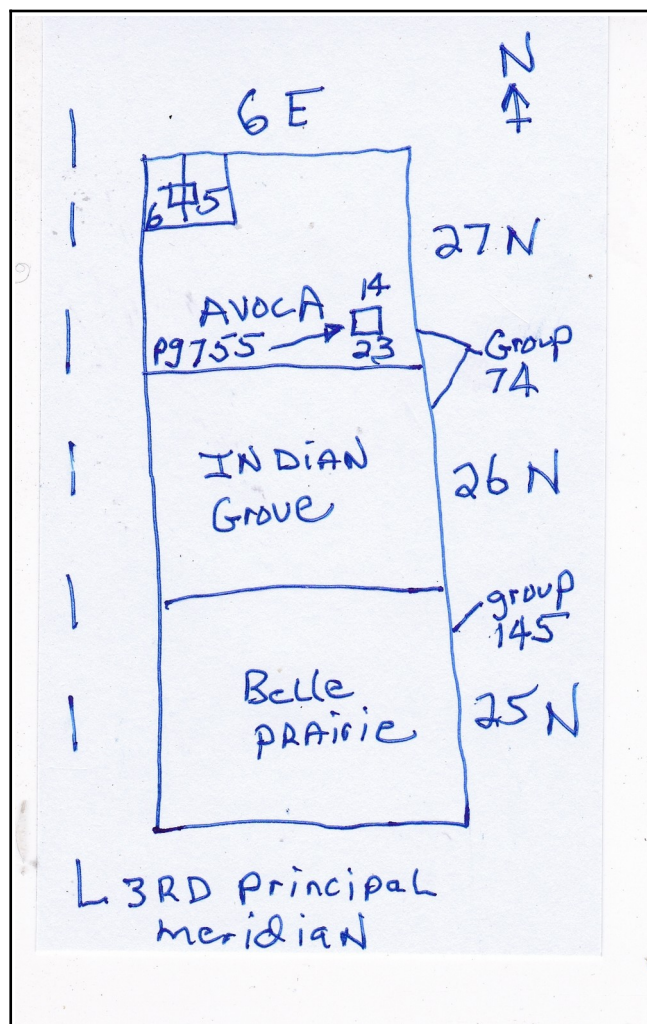 N
6 E
6 5
27 N
14
AVOCA
P9755
23
Group
74
INDIAN
Grove
26 N
group
145
Belle
PRAIRIE
25 N
3RD Principal
meridian